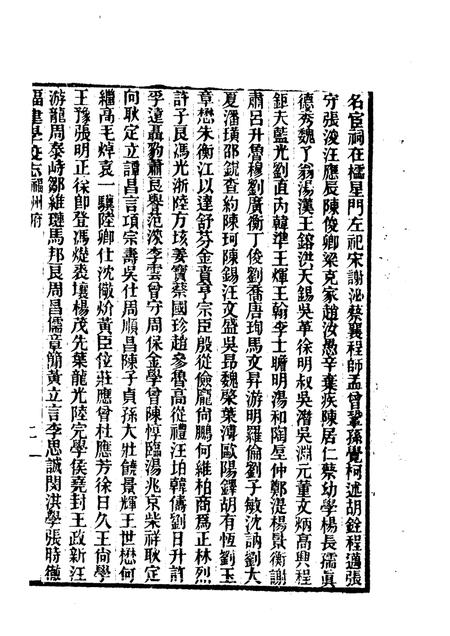 名宦祠在櫺星門左祀宋謝泌蔡襄程師孟曾鞏孫覺柯述胡銓程邁張
守張浚汪應辰陳俊卿梁克家趙汝愚辛棄疾陳居仁蔡幼學楊長孺眞
德秀魏了翁湯漢王鎔洪天錫吳革徐明叔吳潛吳淵元董文炳高興程
鉅夫藍光劉直丙韓準王煇王翰李士瞻明湯和陶屋仲鄭湜楊景衡謝
肅呂升魯穆劉廣衡丁俊劉喬唐珣馬文昇游明羅倫劉子敏沈訥劉大
夏潘璜邵銳查約陳珂陳錫汪文盛吳昂魏棨葉溥歐陽鐸胡有恆劉玉
章懋朱衡江以達舒芬金賁亨宗臣殷從儉龐尚鵬何維柏商爲正林烈
許子良馮光浙陸方垓姜寶蔡國珍趙參魯高從禮汪珀韓儔劉日升許
孚遠聶豹蕭良譽范淶李雲曾守周保金學曾陳惇臨湯兆京柴祥耿定
向耿定立譚昌言項宗壽吳仕周順昌陳子貞孫大壯饒景輝王世懋何
繼高毛焯袁一驥陸卿仕沈儆炌黃臣位莊應曾杜應芳徐日久王尚學
王豫張明正徐卽登馮爌裘壤楊茂先葉龍光陸完學侯堯封王政新汪
游龍周泰峙鄒維璉馬邦良周昌儒章簡黃立言李思誠閔洪學張時徹
福建學校志福州府